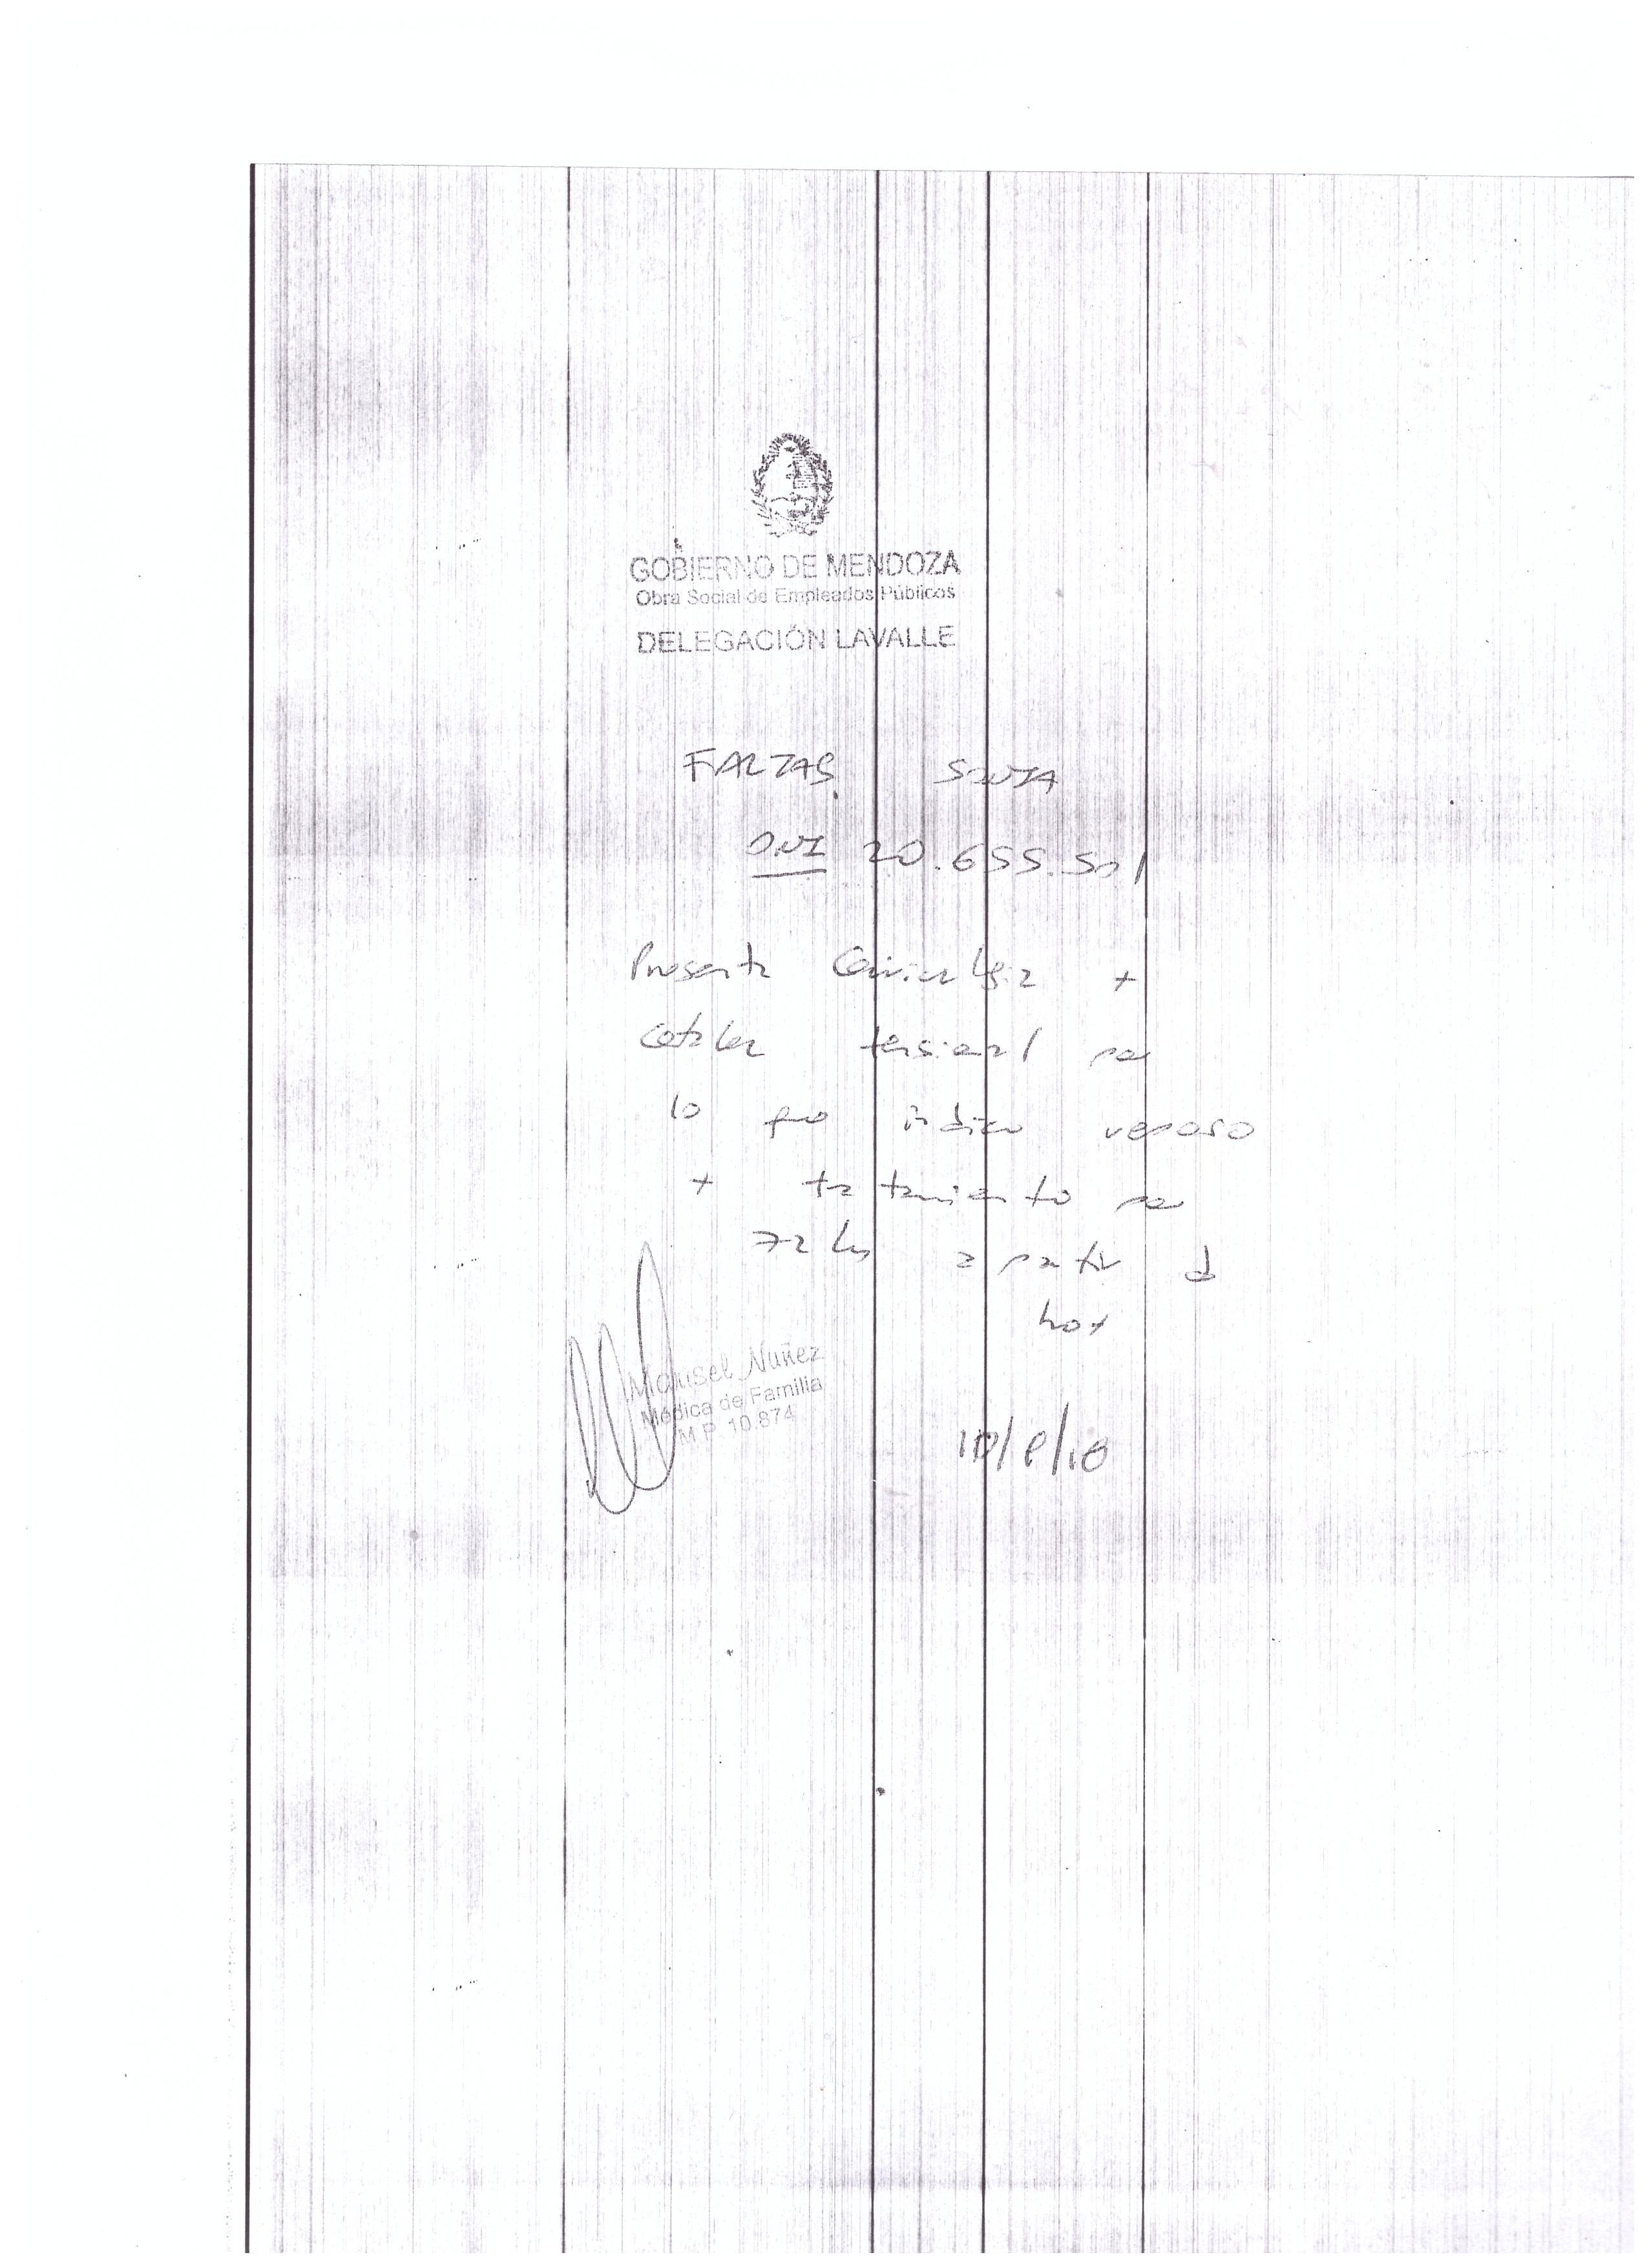 GOBIERNO DE MENDOZA
Obra Social de Empleados Públicos
DELEGACIÓN LAVALLE
SONIA
DNI 20.655.501
Presenta Cervicalgia +
Cefalea tensional por
lo que indico reposo
+ tratamiento por
72 hs a partir de
hoy
Marisel Nuñez
Médica de Familia
M.P. 10.874
10/8/18